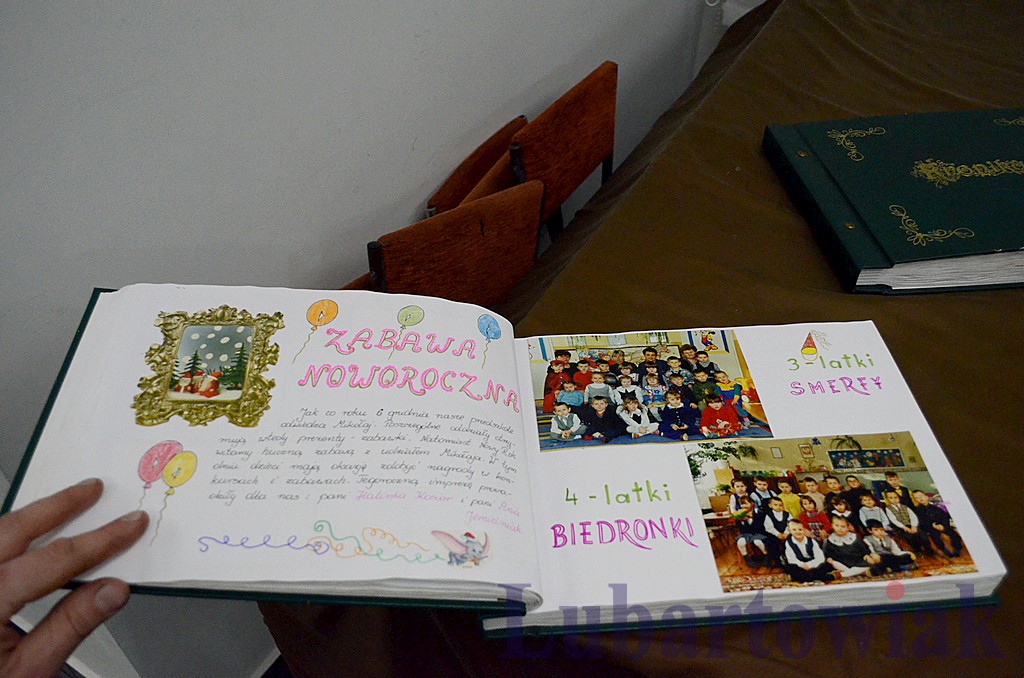 ZABAWA
NOWOROCZNA
Jak co roku 6 grudnia nasze przedszkole
odwiedza Mikołaj. Poszczególne oddziały otrzy-
mują wtedy prezenty - zabawki. Natomiast Nowy Rok
witamy huczną zabawą z udziałem Mikołaja. W tym
dniu dzieci mają okazję zdobyć nagrody w kon-
kursach i zabawach. Tegoroczną imprezę prowa-
dziły dla nas: pani Halinka Kozior i pani Ania
3-latki
SMERFY
4-latki
BIEDRONKI
Kronika
Lubartowiak